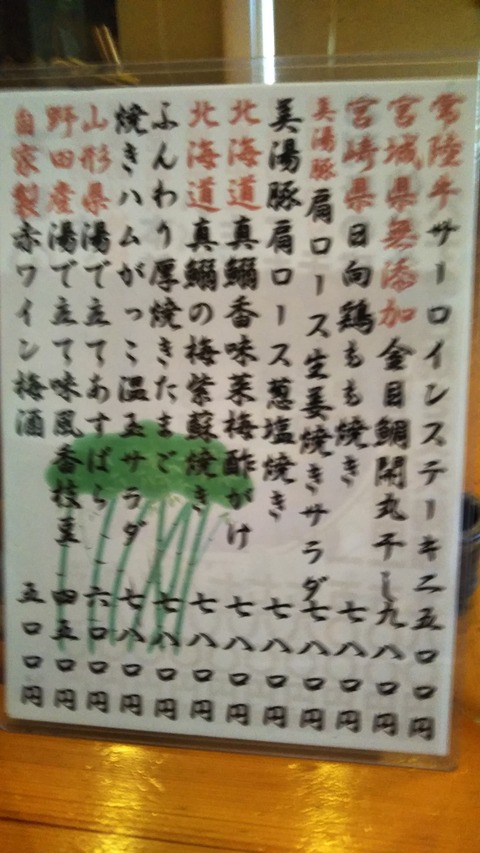 常陸牛サーロインステーキ二五〇〇円
宮城県無添加金目鯛開丸干し九八〇円
宮崎県日向鶏もも焼き七八〇円
美湯豚肩ロース生姜焼きサラダ七八〇円
美湯豚肩ロース葱塩焼き七八〇円
北海道真鰯香味菜梅酢がけ七八〇円
北海道真鰯の梅紫蘇焼き七八〇円
ふんわり厚焼きたまご七八〇円
焼きハムがっこ温玉サラダ七八〇円
山形県湯で立てあすぱら六〇〇円
野田産湯で立て味風香枝豆四五〇円
自家製赤ワイン梅酒五〇〇円